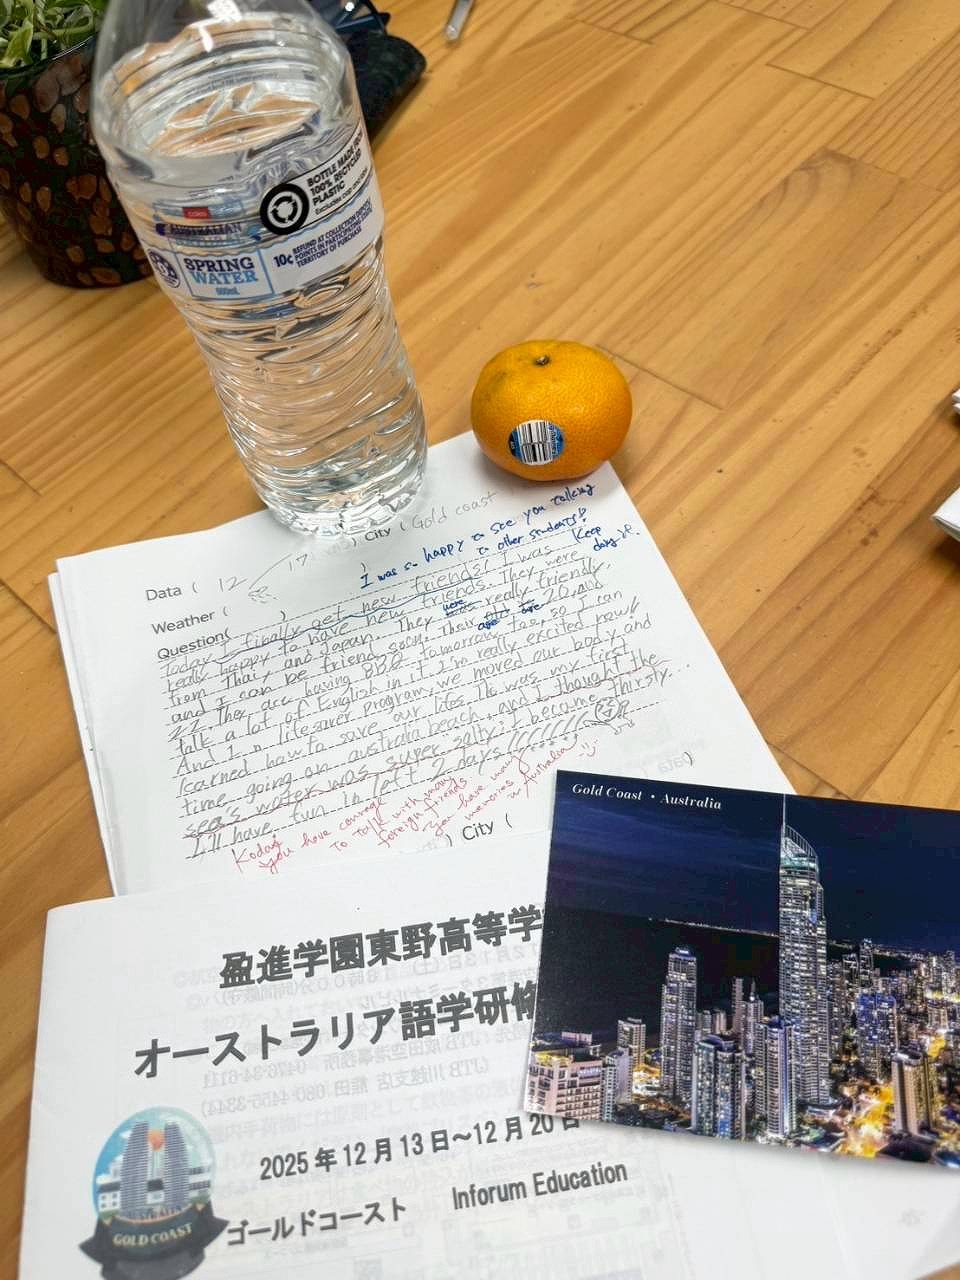 BOTTLE MADE FROM
100% RECYCLED
PLASTIC
Excludes cap and label
coles
AUSTRALIAN
SPRING
WATER
600mL
10c
REFUND AT COLLECTION DEPOTS/
POINTS IN PARTICIPATING STATE/
TERRITORY OF PURCHASE
Data ( 12 17 ) City ( Gold coast
Weather ( )
Question( )
I was so happy to see you talking
to other students!
Keep
Today, I finally get new friends! I was
really happy to have new friends. They were
from Thai, and Japan. They were really friendly,
and I can be friend soon. Their age are 20, and
22. They are having BBQ tomorrow too, so I can
talk a lot of English in it I'm really excited now!
And I n lifesaver program, we moved our body and
learned how to save our lifes. It was my first
time going on australia beach, and I thought the
sea's water was super salty; I become thirsty.
I'll have fun in left 2 days
Kodai
You have courage
to talk with many
foreign friends
You have many
memories
in Australia
) City (
盈進学園東野高等学
オーストラリア語学研修
2025年12月13日～12月20日
ゴールドコースト Inforum Education
GOLD COAST
Gold Coast • Australia